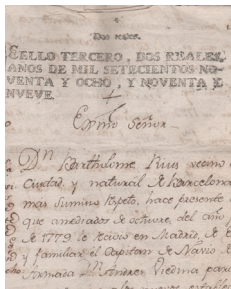 Dos reales.
SELLO TERCERO, DOS REALES,
AÑOS DE MIL SETECIENTOS NO-
VENTA Y OCHO, Y NOVENTA Y
NUEVE.
Exmo Señor
Dn Bartholome Rius vecino
Ciudad, y natural de Barcelona
mas sumiso hace presente
que amediados de octubre del año
de 1779 en Madrid, de
y familiar el Capitan de Navio
Armada Dn Andres Viedma para